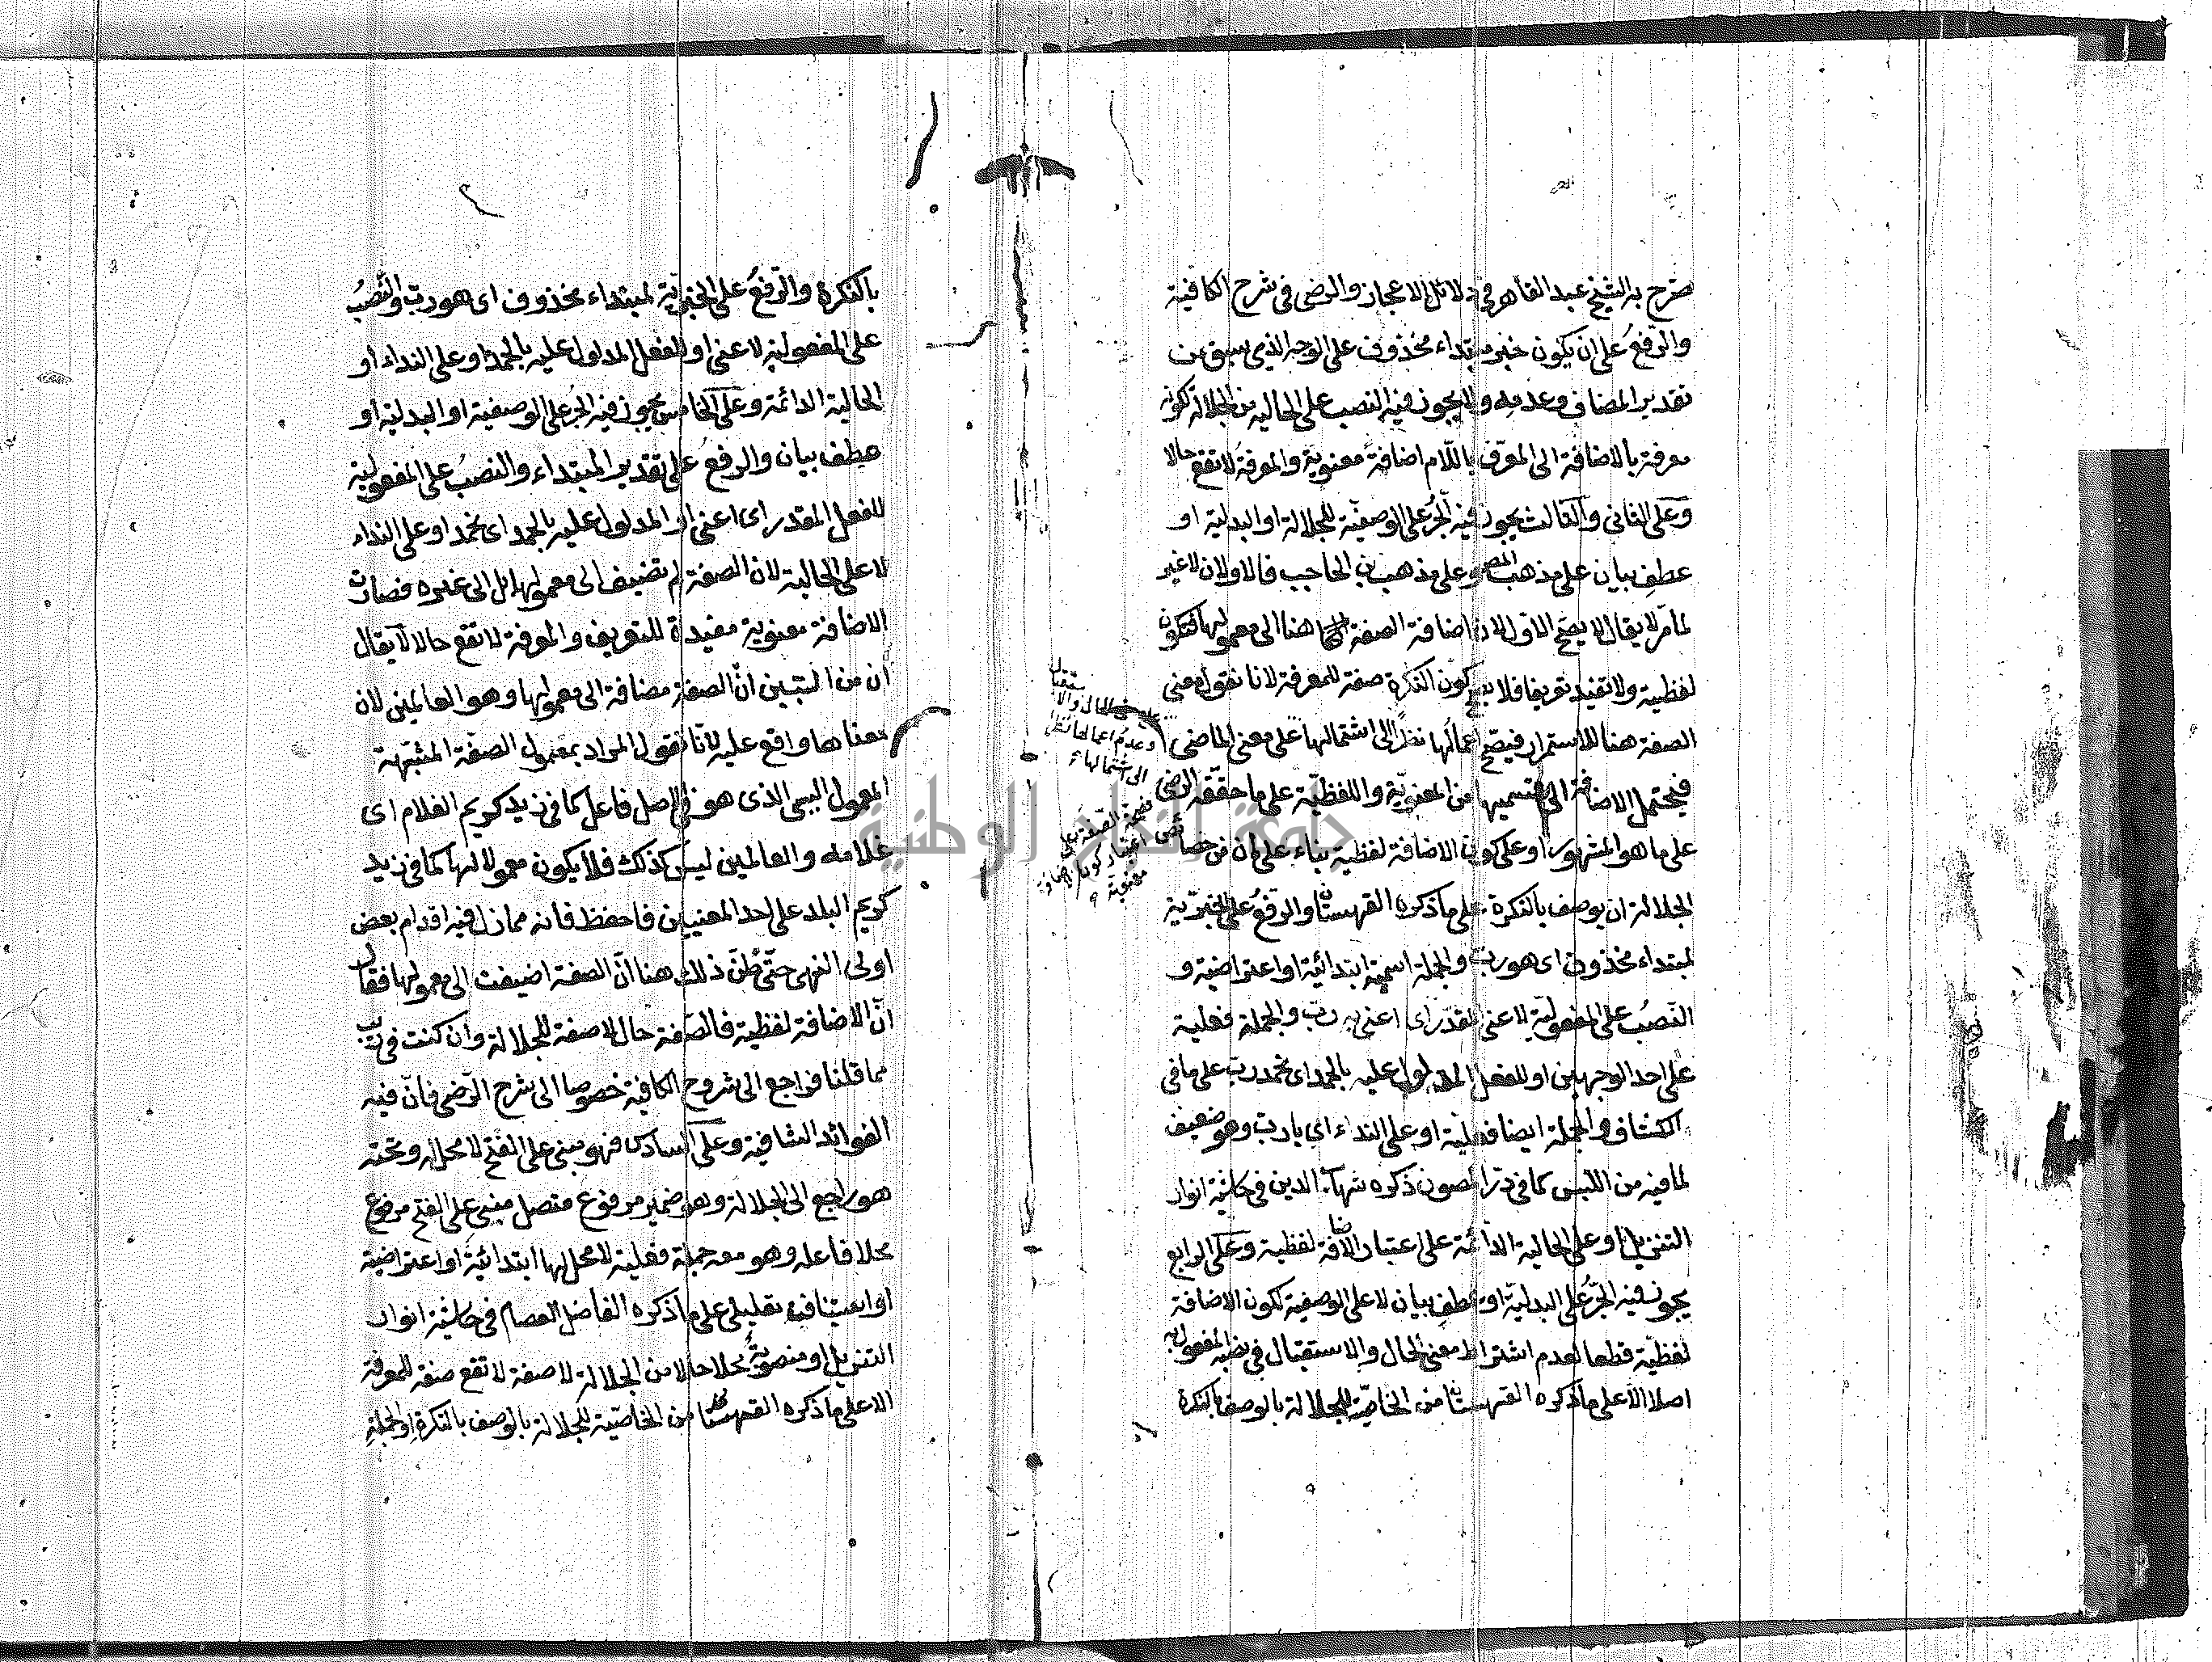 صرح به الشيخ عبد القاهر في دلائل الاعجاز والرضى فى شرح الكافية
والرّفعُ على ان يكون خبر مبتداء محذوف على الوجه الذي سبق من
تقدير المضاف وعدمه ولا يجوز فيه النصب على الحاليه من الجلالة لكونه
معرفة بالاضافة الى المعرّف باللّام اضافةً معنوية والمعرفة لا تقع حالا
وعلى الثانى والثالث يجوز فيه الجرُّ على الوصفيّة للجلالة او البدلية او
عطف بيان على مذهب وعلى مذهب بن الحاجب فالاولان لا غير
لما مرّ لا يقال لا يصح الاول لان اضافة الصفة هنا الى معمولها فتكون
لفظية ولا تفيد تعريفا فلا يصح كون النكرة صفة للمعرفة لانا نقول معنى
الصفة هنا للاستمرار فيصح اعمالُها نظرًا الى اشتمالها على معنى الماضى
فيحتمل الاضافة الى قسميها من المعنويّة واللفظيّة على ما حقّقه الرضى
على ما هو المشهور او على كون الاضافة لفظية بناء على ان من خصائص
الجلالة ان يوصف بالنكرة على ما ذكره القهستانى والرّفعُ على الخبريّة
لمبتداء محذوف اى هو ربّ والجملة اسمية ابتدائية او اعتراضية و
النّصبُ على المفعوليّة لاعنى المقدّر اى اعنى به ربّ والجملة فعلية
على احد الوجهين او للفعل المدلول عليه بالحمد اى نحمد ربّ على ما فى
الكشاف والجملة ايضا فعلية او على النداء اي يا ربّ وهو ضعيف
لما فيه من اللبس كما فى درّ المصون ذكره شهاب الدين فى حاشية انوار
التنزيل او على الحالية الدّائمة على اعتبار الاضافة لفظية وعلى الرابع
يجوز فيه الجرُّ على البدليّة او عطف بيان لا على الوصفية لكون الاضافة
لفظيّة قطعا لعدم اشتراط معنى الحال والاستقبال في نصب المفعول به
اصلا الّا على ما ذكره القهستانى من الخاصّية للجلالة بالوصف بالنكرة
على معنى الحال والاستقبال
وعدم اعمالها نظرا
الى اشتمالها
معنوية
بالنكرة والرّفعُ على الخبريّة لمبتداء محذوف اى هو ربّ والنّصبُ
على المفعولية لاعنى او للفعل المدلول عليه بالحمد او على النداء او
الحالية الدائمة وعلى الخامس يجوز فيه الجرُّ على الوصفية او البدلية او
عطف بيان والرفعُ على تقدير المبتداء والنصبُ على المفعولية
للفعل المقدر اى اعنى او المدلول عليه بالحمد اى نحمد او على النداء
لا على الحالية لان الصفة لم تضيف الى معمولها بل الى غيره فصارت
الاضافة معنوية مفيدة للتعريف والمعرفة لا تقع حالا لا يقال
ان من المتبين انّ الصفة مضافة الى معمولها وهو العالمين لان
معناها واقع عليه لانا نقول المراد بمعمول الصفة المشبّهة
المعمول السببى الذى هو فى الاصل فاعل كما فى زيد كريم الغلام اى
غلامه والعالمين ليس كذلك فلا يكون معمولا لها كما فى زيد
كريم البلد على احد المعنيين فاحفظ فانه مما زل فيه اقدام بعض
اولى النهى حتّى ظنّ ذلك هنا انّ الصفة اضيفت الى معمولها فقال
انّ الاضافة لفظية فالصّفة حال لا صفة للجلالة وان كنت فى ريب
مما قلنا فراجع الى شروح الكافية خصوصا الى شرح الرّضى فانّ فيه
الفوائد الشافية وعلى السادس فهو مبنى على الفتح لا محل له وتحته
هو راجع الى الجلالة وهو ضمير مرفوع متصل مبنى على الفتح مرفوع
محلا فاعله وهو معه جملة فعلية لا محل لها ابتدائية او اعتراضية
او استيناف تعليلى على ما ذكره الفاضل العصام فى حاشية انوار
التنزيل او منصوبةٌ محلا حالا من الجلالة لا صفة لا تقع صفة للمعرفة
الا على ما ذكره القهستانى من الخاصّية للجلالة بالوصف بالنكرة والجملةِ
جامعة النجاح الوطنية